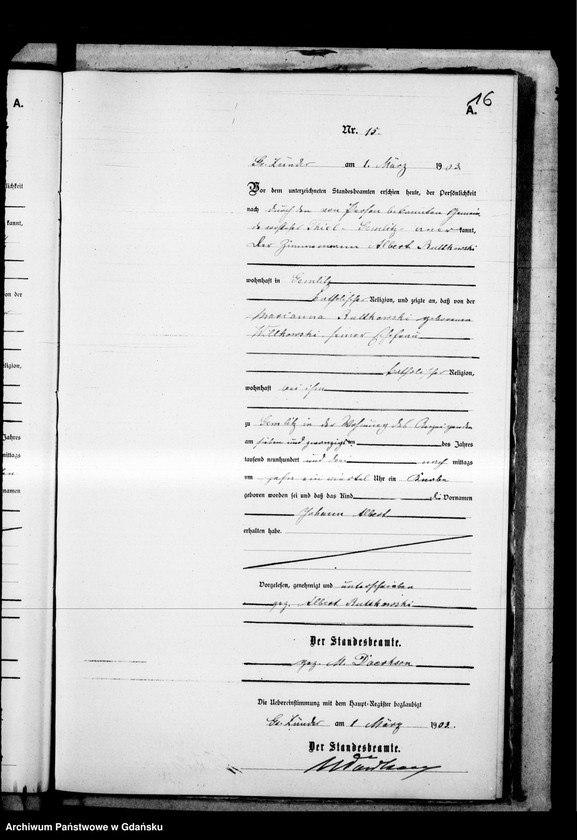 16
A.
A.
Nr. 15.
Gr. Zünder am 1. März 1902
Vor dem unterzeichneten Standesbeamten erschien heute, der Persönlichkeit
nach durch den von Person bekannten Gemein
de vorsteher Thiel-Gemlitz aner kannt,
Der Zimmermann Albert Rutkowski
wohnhaft in Gemlitz
katholischer Religion, und zeigte an, daß von der
Marianna Rutkowski geborenen
Willkowski seiner Ehefrau
katholischer Religion,
wohnhaft bei ihm
zu Gemlitz in der Wohnung des Anzeigenden
am sieben und zwanzigsten des Jahres
tausend neunhundert und nach mittags
um Uhr ein Knabe
geboren worden sei und daß das Kind die Vornamen
Johann Albert
erhalten habe.
Vorgelesen, genehmigt und unterschrieben
gez. Albert Rutkowski
Der Standesbeamte.
gez. M.
Die Uebereinstimmung mit dem Haupt-Register beglaubigt
Gr. Zünder am 1 März 1902.
Der Standesbeamte.
lichkeit
kannt,
von der
eligion,
Jahres
mittags
ornamen
Archiwum Państwowe w Gdańsku